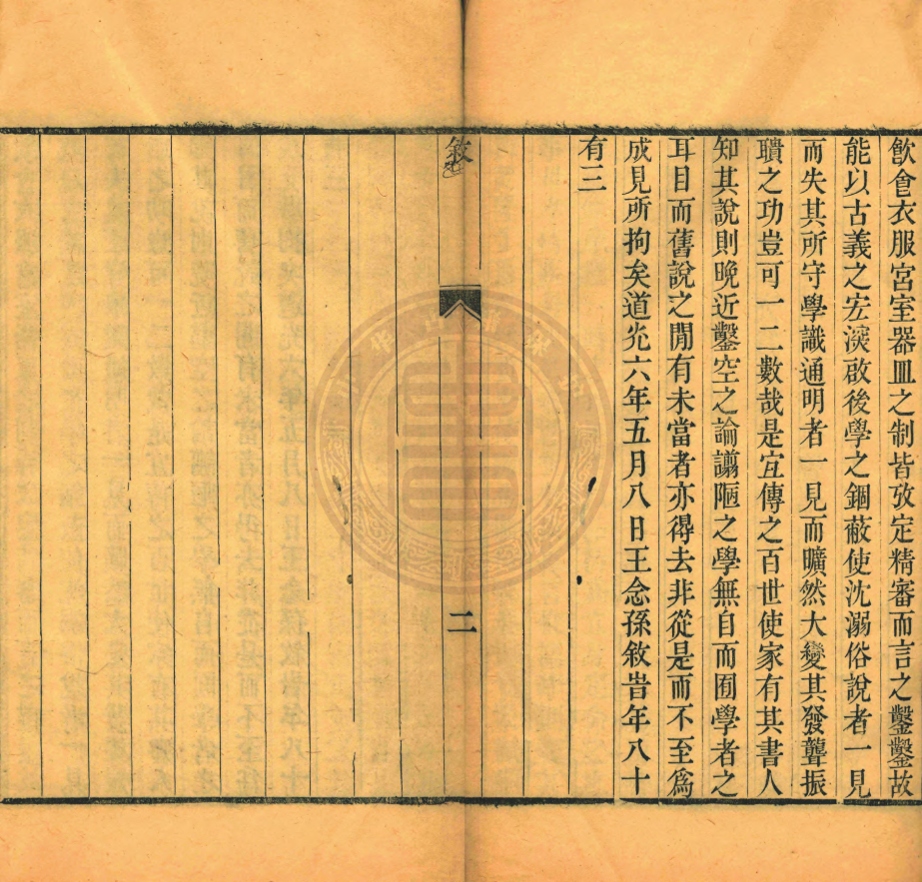 飮㑹衣服宮室器皿之制皆攷定精審而言之鑿鑿故
能以古義之宏深啟後學之錮蔽使沈溺俗說者一見
而失其所守學識通明者一見而曠然大變其發聾振
聵之功豈可一二數哉是宜傳之百世使家有其書人
知其說則晚近鑿空之論謭陋之學無自而囿學者之
耳目而舊說之閒有未當者亦得去非從是而不至爲
成見所拘矣道光六年五月八日王念孫敘旹年八十
有三
敘
二